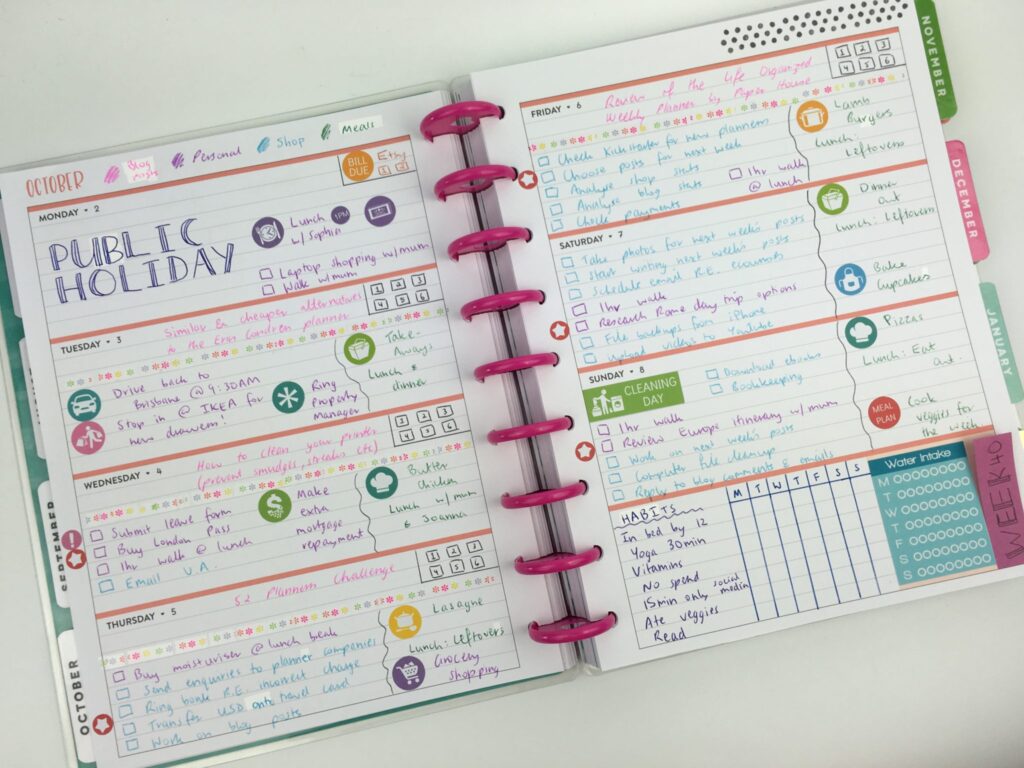 Blog posts
Personal
Shop
Meals
OCTOBER
BILL DUE
Etsy
MONDAY • 2
PUBLIC
HOLIDAY
Lunch
w/ Sophia
1PM
Laptop shopping w/ mum
Walk w/ mum
Similar & cheaper alternatives
to the Erin Condren planner
1 2 3
4 5 6
TUESDAY • 3
Drive back to
Brisbane @ 4:30AM
Stop in @ IKEA for
new drawers!
Ring
Property
Manager
Take-
Aways
Lunch &
dinner
How to clean your printer
(prevent smudges, streaks etc)
1 2 3
4 5 6
WEDNESDAY • 4
Submit leave form
Buy London Pass
1hr walk @ lunch
Email V.A.
Make
extra
mortgage
repayment
Butter
chicken
Lunch w/ mum
& Joanna
52 Planners Challenge
1 2 3
4 5 6
THURSDAY • 5
Buy moisturiser @ lunch beak
Send enquiries to planner companies
Ring bank R.E. incorrect charge
Transfer USD onto travel card
Work on blog posts
Lasagne
Lunch: Leftovers
Grocery
shopping
SEPTEMBER
OCTOBER
FRIDAY • 6
Review of the Life Organized
Weekly Planner by Paper House
1 2 3
4 5 6
Check Kickstarter for new planners
Choose posts for next week
Analyse shop stats
Analyse blog stats
Check payments
1hr walk
@ lunch
Lamb
Burgers
Lunch:
Leftovers
SATURDAY • 7
Take photos for next week's posts
Start writing next week's posts
Schedule email R.E. ecourses
1hr walk
Research Rome day trip options
File backups from iPhone
Upload videos to YouTube
Dinner
out
Lunch: Leftovers
Bake
Cupcakes
SUNDAY • 8
CLEANING
DAY
Download ebooks
Bookkeeping
1hr walk
Review Europe itinerary w/ mum
Work on next week's posts
Computer file cleanup
Reply to blog comments & emails
Pizzas
Lunch: Eat
out.
MEAL
PLAN
Cook
veggies for
the week
HABITS
M T W T F S S
In bed by 12
Yoga 30min
Vitamins
No spend
15min only social media
Ate veggies
Read
Water Intake
M
T
W
T
F
S
S
WEEK 40
NOVEMBER
DECEMBER
JANUARY